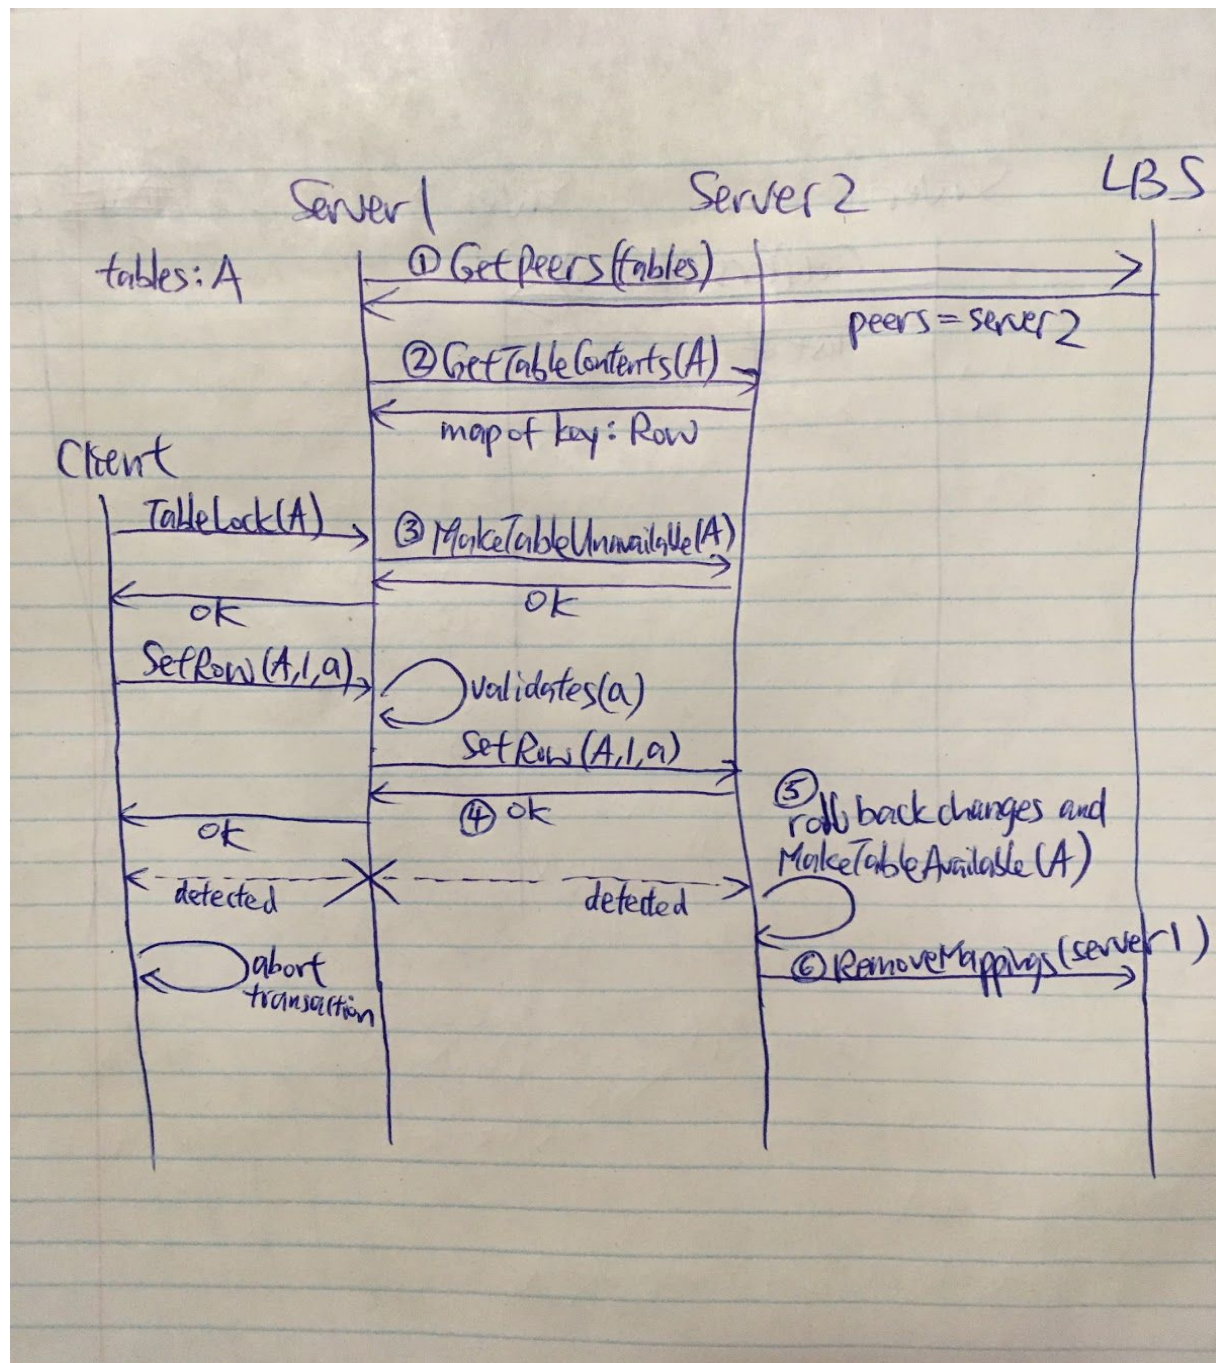 LBS
Server 1
Server 2
tables: A
① GetPeers(tables)
peers = server2
② GetTableContents(A)
map of key: Row
Client
TableLock(A)
③ MakeTableUnavailable(A)
ok
ok
SetRow(A,1,a)
validates(a)
SetRow(A,1,a)
④ ok
ok
⑤
roll back changes and
MakeTableAvailable(A)
detected
detected
⑥ RemoveMappings(server1)
abort
transaction